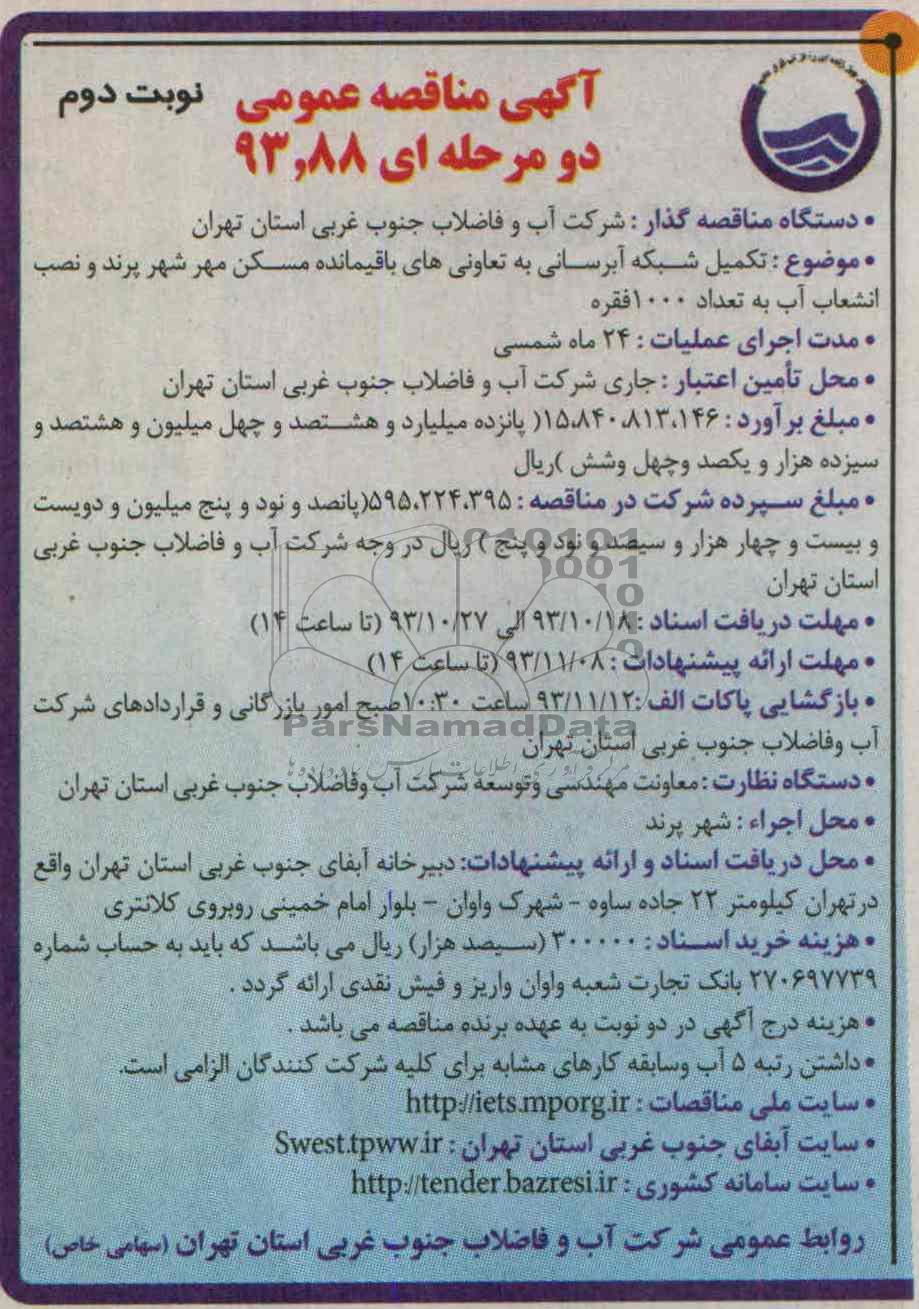 آگهی مناقصه عمومی
نوبت دوم
دو مرحله ای ۹۳,۸۸
• دستگاه مناقصه گذار : شرکت آب و فاضلاب جنوب غربی استان تهران
• موضوع : تکمیل شبکه آبرسانی به تعاونی های باقیمانده مسکن مهر شهر پرند و نصب
انشعاب آب به تعداد ۱۰۰۰فقره
• مدت اجرای عملیات : ۲۴ ماه شمسی
• محل تأمین اعتبار : جاری شرکت آب و فاضلاب جنوب غربی استان تهران
• مبلغ برآورد : ۱۵،۸۴۰،۸۱۳،۱۴۶( پانزده میلیارد و هشتصد و چهل میلیون و هشتصد و
سیزده هزار و یکصد وچهل وشش )ریال
• مبلغ سپرده شرکت در مناقصه : ۵۹۵،۲۲۴،۳۹۵(پانصد و نود و پنج میلیون و دویست
و بیست و چهار هزار و سیصد و نود و پنج ) ریال در وجه شرکت آب و فاضلاب جنوب غربی
استان تهران
• مهلت دریافت اسناد : ۹۳/۱۰/۱۸ الی ۹۳/۱۰/۲۷ (تا ساعت ۱۴)
• مهلت ارائه پیشنهادات : ۹۳/۱۱/۰۸ (تا ساعت ۱۴)
• بازگشایی پاکات الف :۹۳/۱۱/۱۲ ساعت ۱۰:۳۰صبح امور بازرگانی و قراردادهای شرکت
ParsNamadData
آب وفاضلاب جنوب غربی استان تهران
• دستگاه نظارت : معاونت مهندسی وتوسعه شرکت آب وفاضلاب جنوب غربی استان تهران
• محل اجراء : شهر پرند
• محل دریافت اسناد و ارائه پیشنهادات: دبیرخانه آبفای جنوب غربی استان تهران واقع
درتهران کیلومتر ۲۲ جاده ساوه - شهرک واوان - بلوار امام خمینی روبروی کلانتری
• هزینه خرید اسناد : ۳۰۰۰۰۰ (سیصد هزار) ریال می باشد که باید به حساب شماره
۲۷۰۶۹۷۷۳۹ بانک تجارت شعبه واوان واریز و فیش نقدی ارائه گردد .
• هزینه درج آگهی در دو نوبت به عهده برنده مناقصه می باشد .
• داشتن رتبه ۵ آب وسابقه کارهای مشابه برای کلیه شرکت کنندگان الزامی است.
• سایت ملی مناقصات : http://iets.mporg.ir
• سایت آبفای جنوب غربی استان تهران : Swest.tpww.ir
• سایت سامانه کشوری : http://tender.bazresi.ir
روابط عمومی شرکت آب و فاضلاب جنوب غربی استان تهران (سهامی خاص)